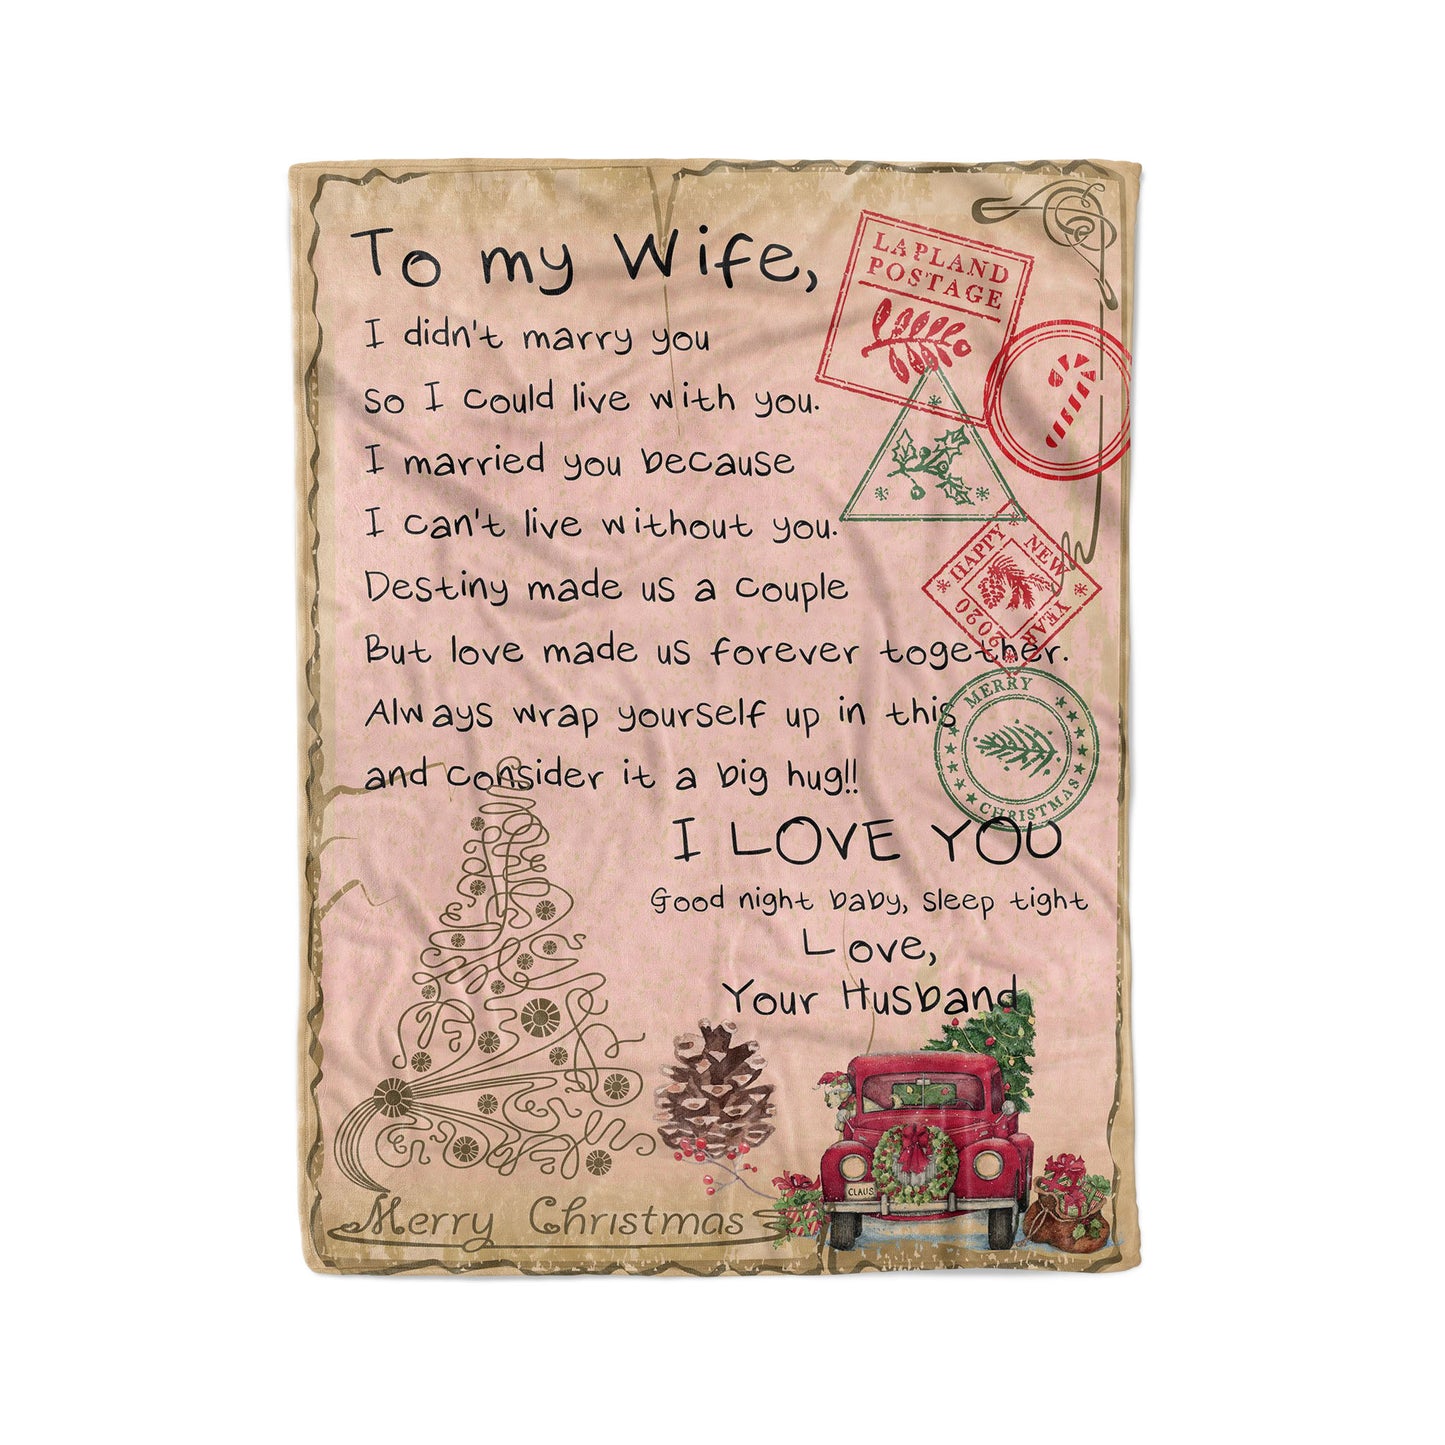 To my Wife,
I didn't marry you
so I could live with you.
I married you because
I can't live without you.
Destiny made us a couple
But love made us forever together.
Always wrap yourself up in this
and consider it a big hug!!
I LOVE YOU
Good night baby, sleep tight
Love,
Your Husband
LAPLAND
POSTAGE
HAPPY
NEW
YEAR
2020
MERRY
CHRISTMAS
CLAUS
Merry Christmas